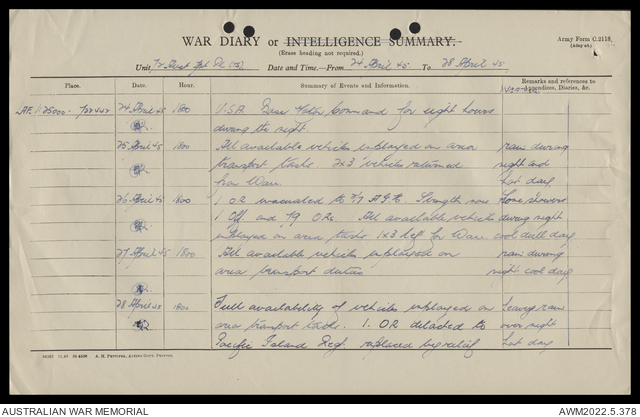 WAR DIARY or INTELLIGENCE SUMMARY.
(Erase heading not required.)
Army Form C.2118.
(Adapted).
Unit Aust Date and Time.—From 24 April 45 To 28 April 45
Place. Date. Hour. Summary of Events and Information. Remarks and references to Appendices, Diaries, &c.
24 April 45 1800 U.S.A. Base Command for eight hours
during the night.
25 April 45 1800 All available vehicles employed on area rain during
transport tasks. 2x3 vehicles returned night and
from Wau. hot day.
26 April 45 1800 1 OR evacuated to 2/7 A.G.H. Strength now showers
1 Off. and 79 ORs. All available vehicles during night
employed on area tasks. 1x3 left for Wau. cool dull day.
27 April 45 1800 All available vehicles employed on rain during
area transport duties night cool day.
28 April 45 1800 Full availability of vehicles employed on heavy rain
area transport tasks. 1. OR detached to over night
Pacific Island Regt. replaced by relief hot day
A. H. PETTIFER, ACTING GOVT. PRINTER.
AUSTRALIAN WAR MEMORIAL
AWM2022.5.378